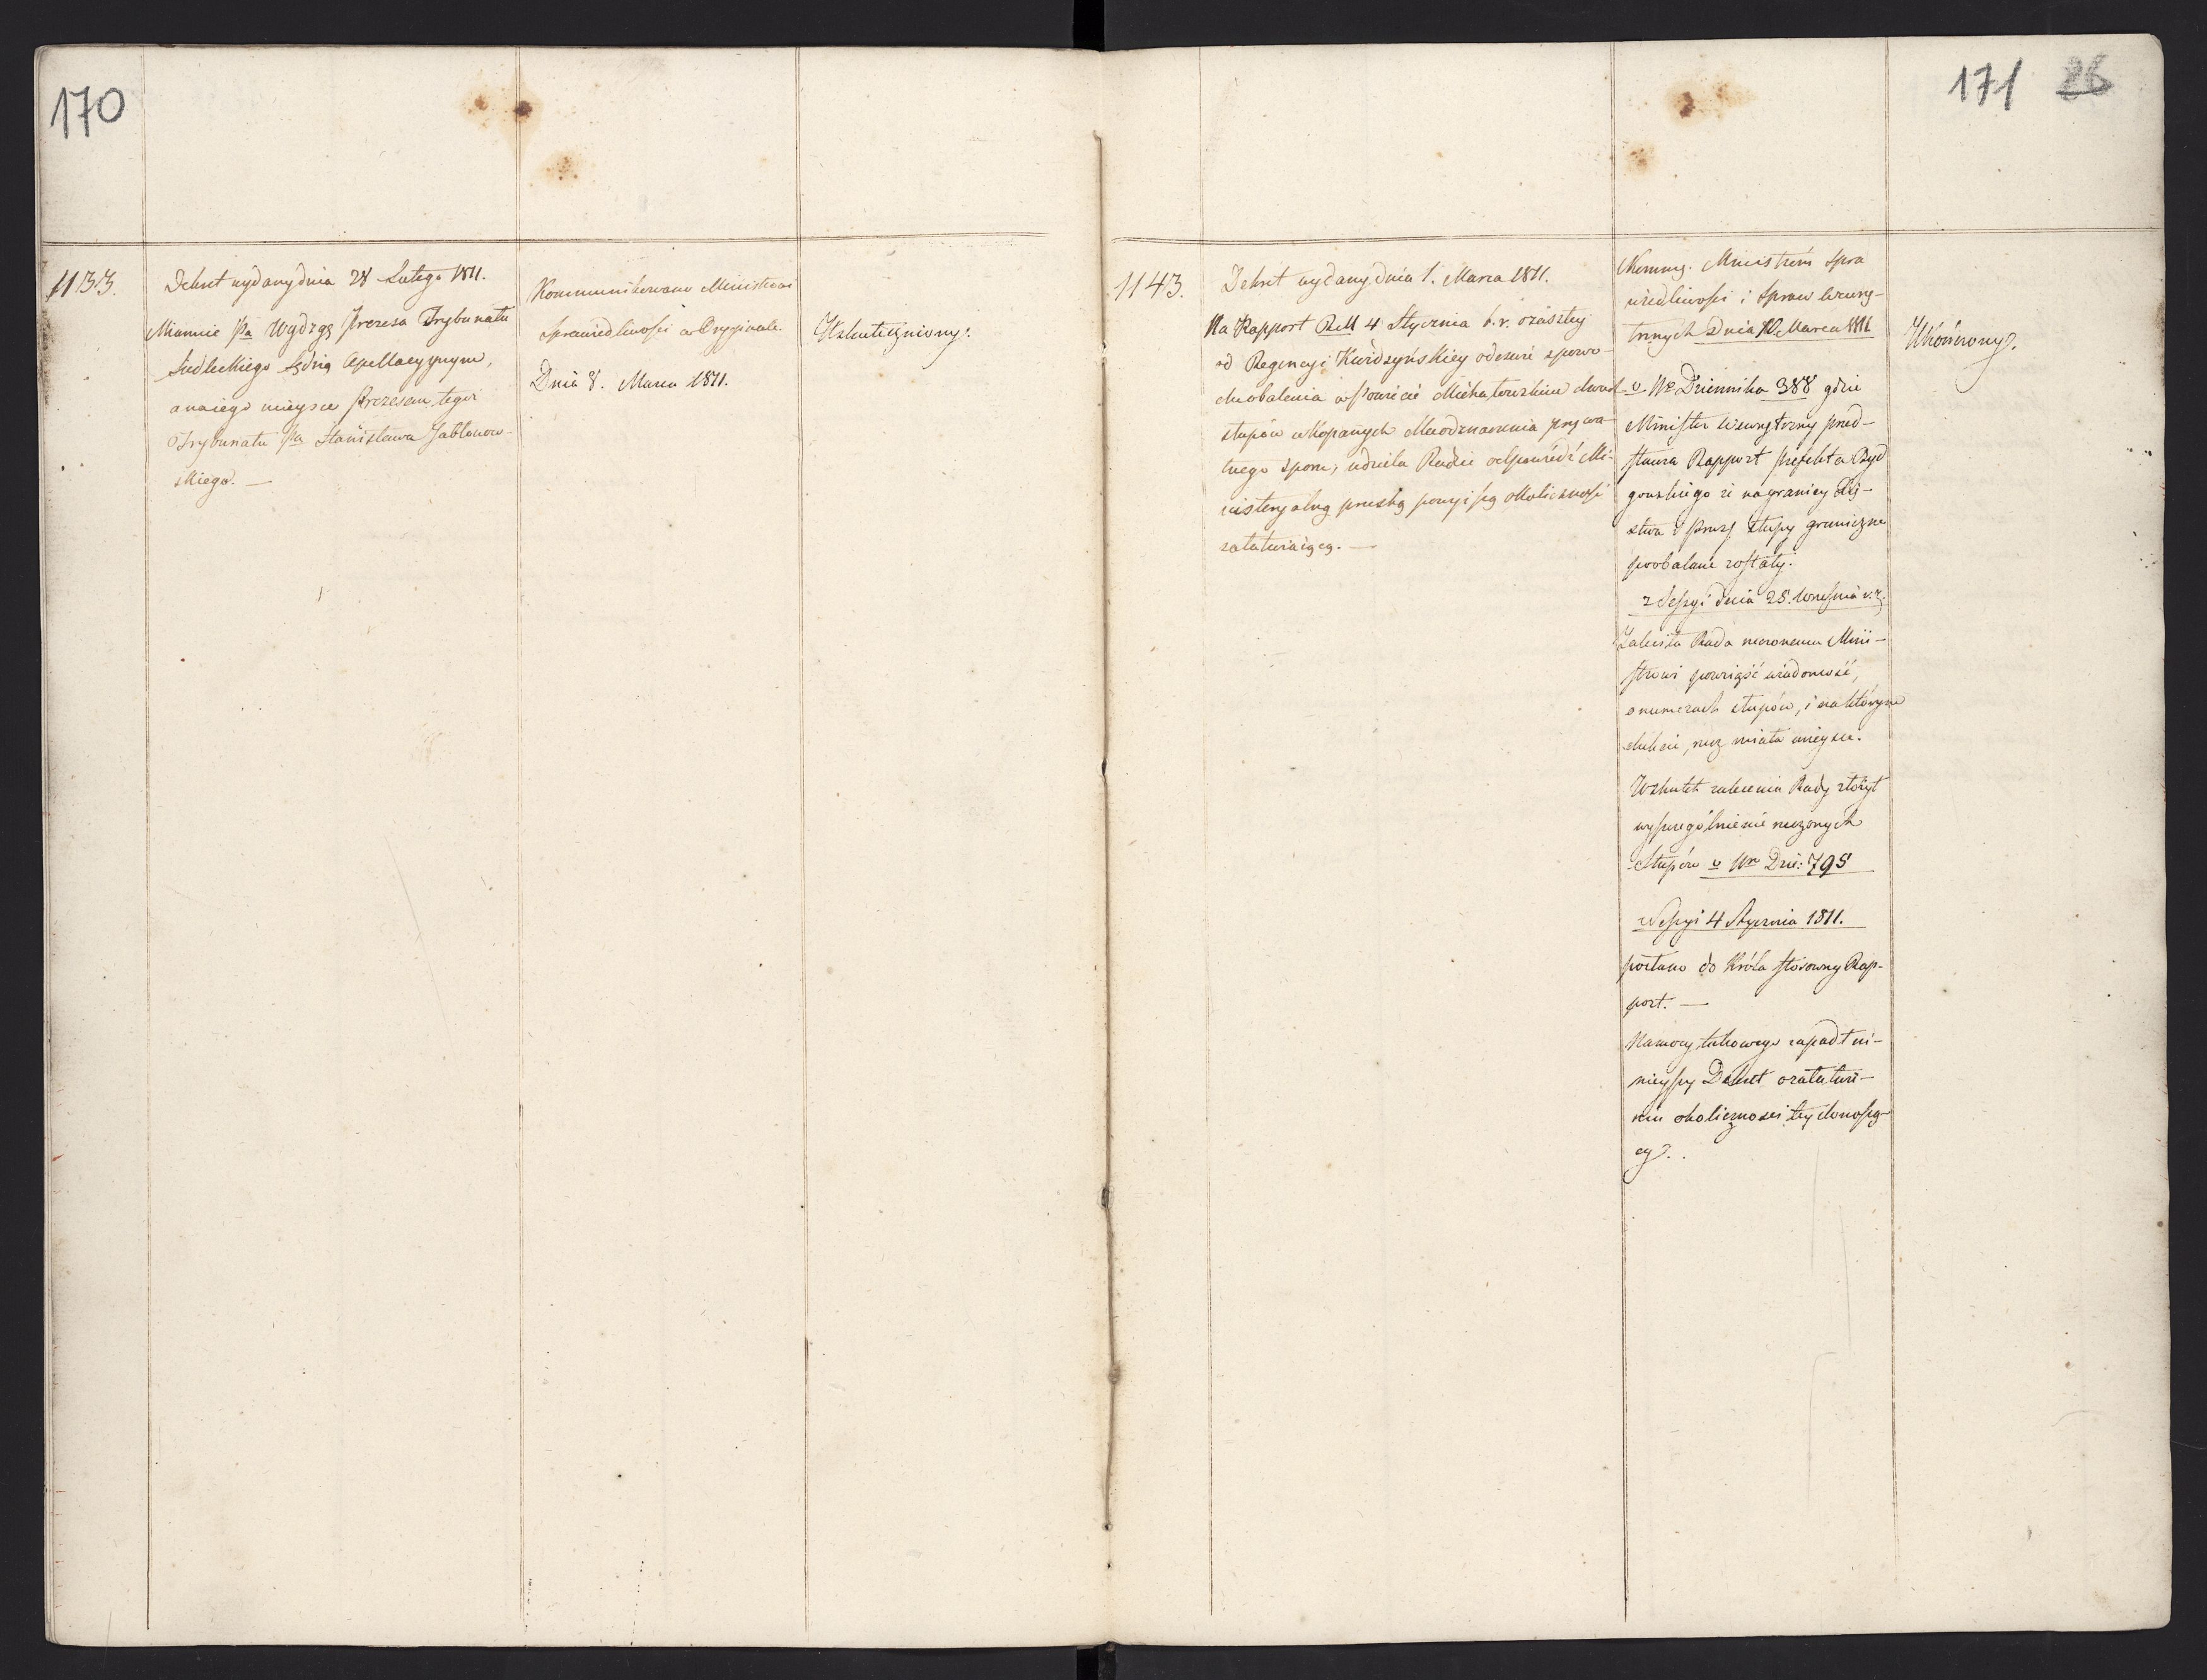 170
1133.
Dekret wydany dnia 28 Lutego 1811.
Mianuie Pa Wydzgę Prezesa Trybunału
Siedleckiego Sędzią Apellacyynym,
a na iego mieysce Prezesem tegoż
Trybunału Pa Stanisława Jabłonow-
skiego. —
Kommunikowano Ministrowi
Sprawiedliwości w Oryginale.
Dnia 8. Marca 1811.
Uskuteczniony.
171 26
1143.
Dekret wydany dnia 1. Marca 1811.
Na Rapport 4 Stycznia b. r. o zaszłey
od Regencyi Kwidzyńskiey odezwie z powo-
du obalenia w Powiecie Michałowskim dwóch
słupów wkopanych dla odznaczenia prywa-
tnego sporu, udziela Radzie odpowiedź Mi-
nisteryalną pruską powyiszą okoliczność
załatwiaiącą. —
Kommuq. Ministróm Spra
wiedliwości i Spraw Wewnę-
trznych Dnia Marca 1811
v. Nro Dziennika 388 gdzie
Minister Wewnętrzny przed-
stawia Rapport Prefekta Byd
goskiego iż na granicy Xię-
stwa i Pruss słupy graniczne
poobalane zostały.
z Sessyi dnia 28. Września v. r.
Zaleciła Rada rzeczonemu Mini-
strowi powziąść wiadomość,
o numerach słupów, i na którym
trakcie, rzecz miała mieysce.
Wskutek zalecenia Rady złożył
wyszczególnienie rzeczonych
Słupów v Nro Dzie: 795
z Sessyi 4 Stycznia 1811.
posłano do Króla stosowny Rap-
port. —
Na mocy takowego zapadł ni-
nieyszy Dekret o załatwie-
niu okoliczności tey donoszą-
cy.
Ukończony.